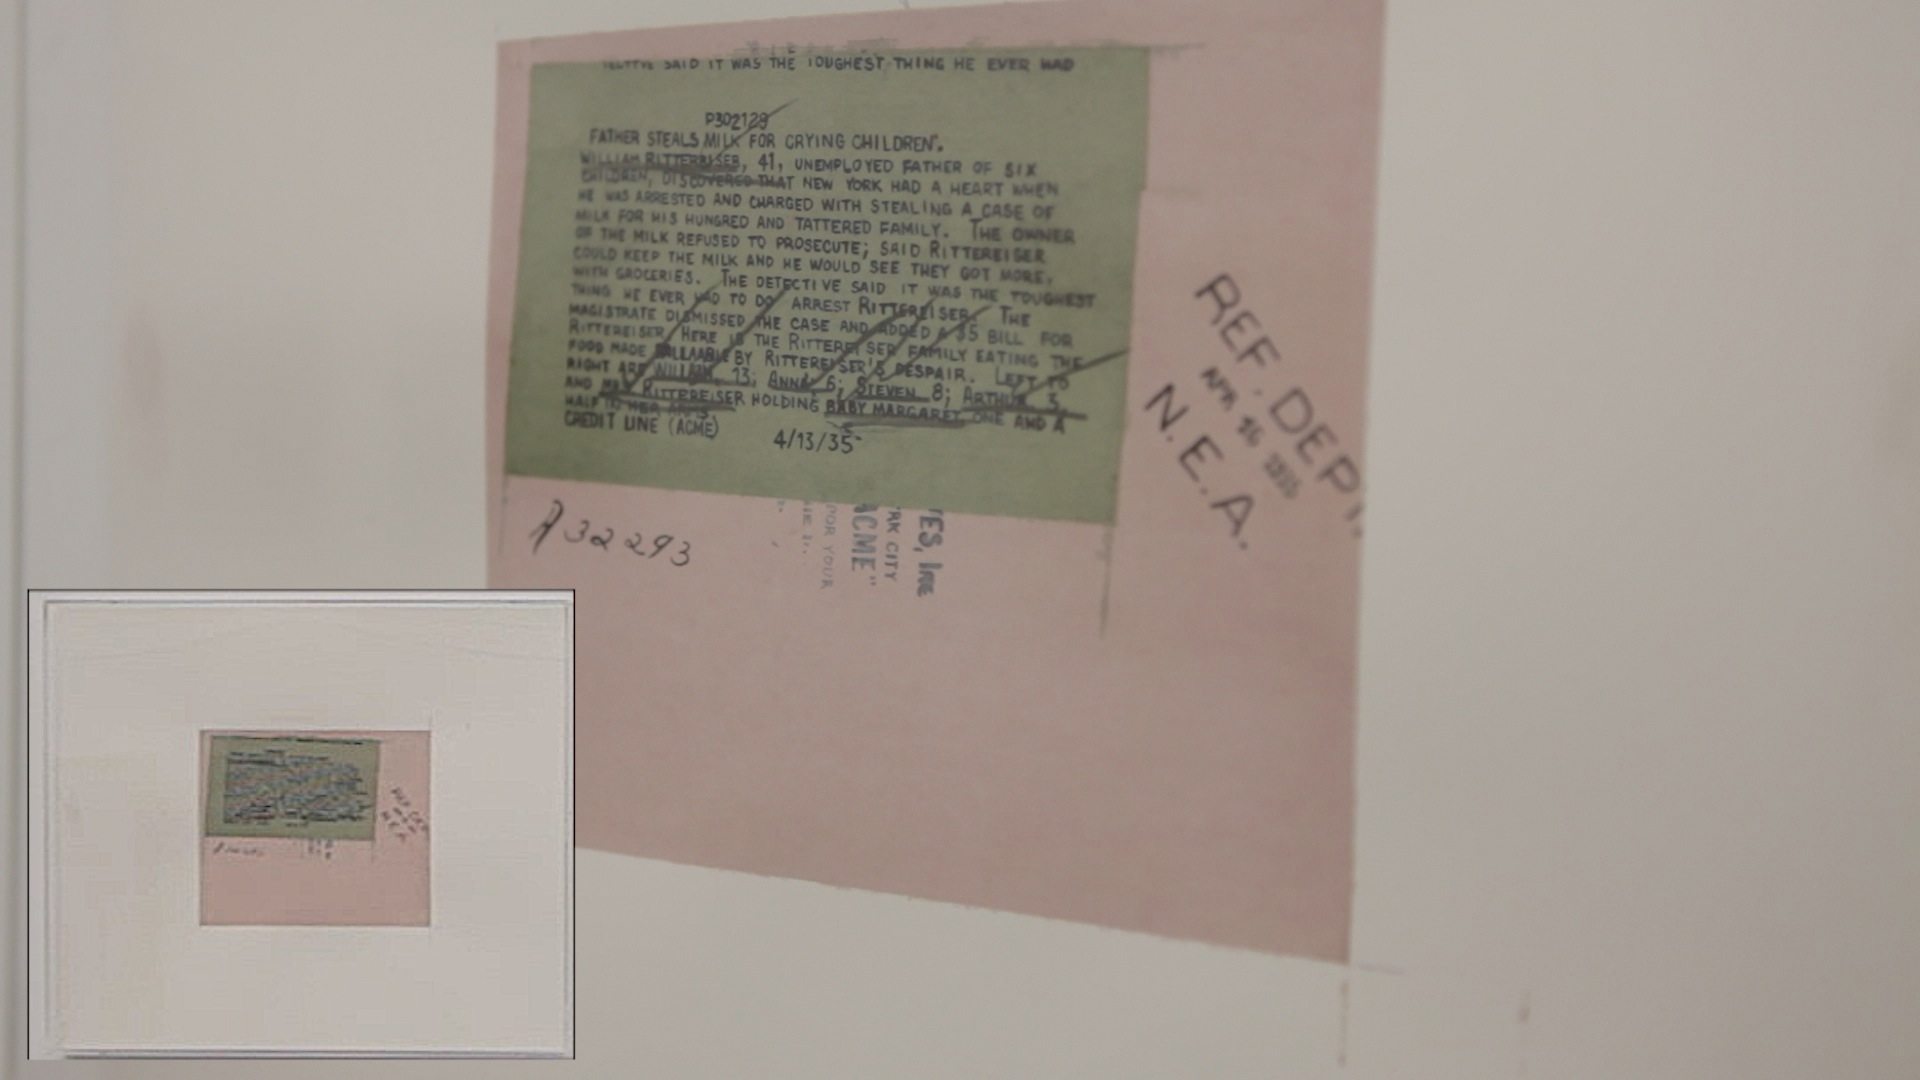 TECTIVE SAID IT WAS THE TOUGHEST THING HE EVER HAD
P302129
FATHER STEALS MILK FOR CRYING CHILDREN.
WILLIAM RITTEREISER, 41, UNEMPLOYED FATHER OF SIX
CHILDREN, DISCOVERED THAT NEW YORK HAD A HEART WHEN
HE WAS ARRESTED AND CHARGED WITH STEALING A CASE OF
MILK FOR HIS HUNGRED AND TATTERED FAMILY. THE OWNER
OF THE MILK REFUSED TO PROSECUTE; SAID RITTEREISER
COULD KEEP THE MILK AND HE WOULD SEE THEY GOT MORE,
WITH GROCERIES. THE DETECTIVE SAID IT WAS THE TOUGHEST
THING HE EVER HAD TO DO, ARREST RITTEREISER. THE
MAGISTRATE DISMISSED THE CASE AND ADDED A $5 BILL FOR
RITTEREISER. HERE IS THE RITTEREISER FAMILY EATING THE
FOOD MADE BY RITTEREISER'S DESPAIR. LEFT TO
RIGHT ARE WILLIAM, 13; ANNA 6; STEVEN 8; ARTHUR 3,
AND MRS RITTEREISER HOLDING BABY MARGARET, ONE AND A
HALF IN HER ARMS.
CREDIT LINE (ACME) 4/13/35
REF. DEPT.
APR 16 1935
N.E.A.
32293
TES, INC
RK CITY
ACME"
FOR YOUR